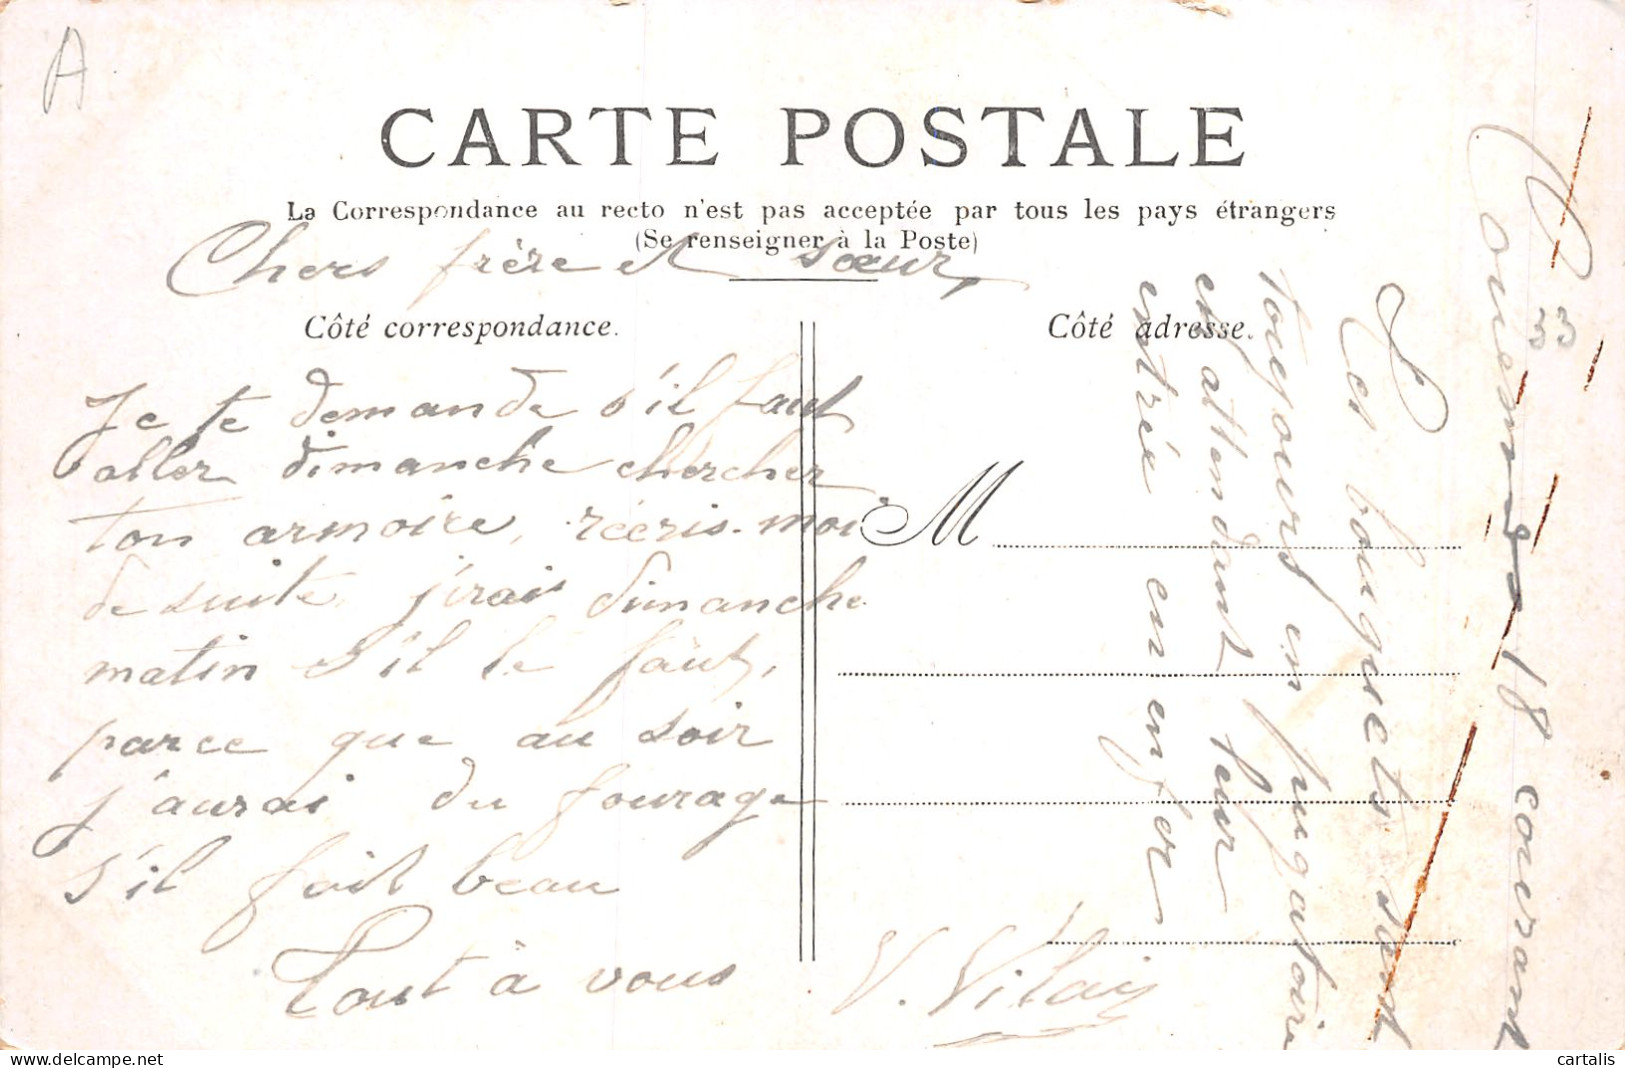 A
CARTE POSTALE
La Correspondance au recto n'est pas acceptée par tous les pays étrangers
(Se renseigner à la Poste)
Chers frère et sœur,
Côté correspondance.
Je te demande s'il faut
aller dimanche chercher
ton armoire, réecris-moi
de suite j'irai dimanche
matin s'il le faut,
parce que au soir
j'aurai du fourage
s'il fait beau
Tout à vous
V. Vilain
Côté adresse.
M
18 courant
Les bouquets sont
toujours en pugatoire
en attendant leur
entrée en enfer
33
cartalis